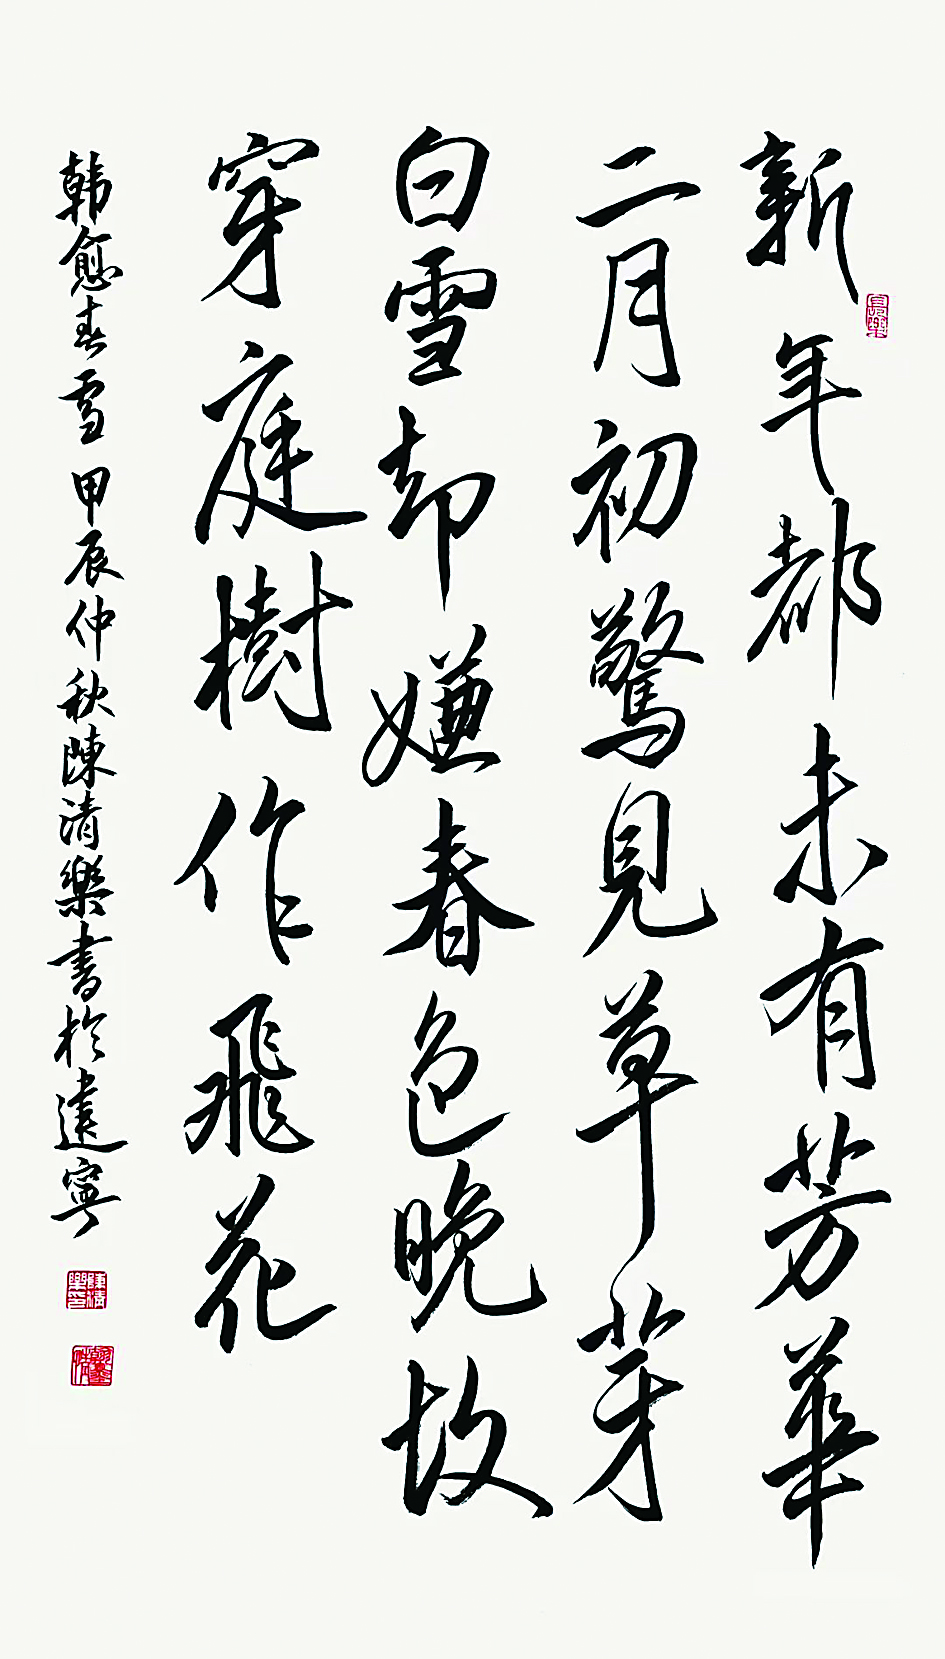 新年都未有芳華
二月初驚見草芽
白雪却嫌春色晚故
穿庭樹作飛花
韩愈春雪甲辰仲秋陳清樂書於建寧